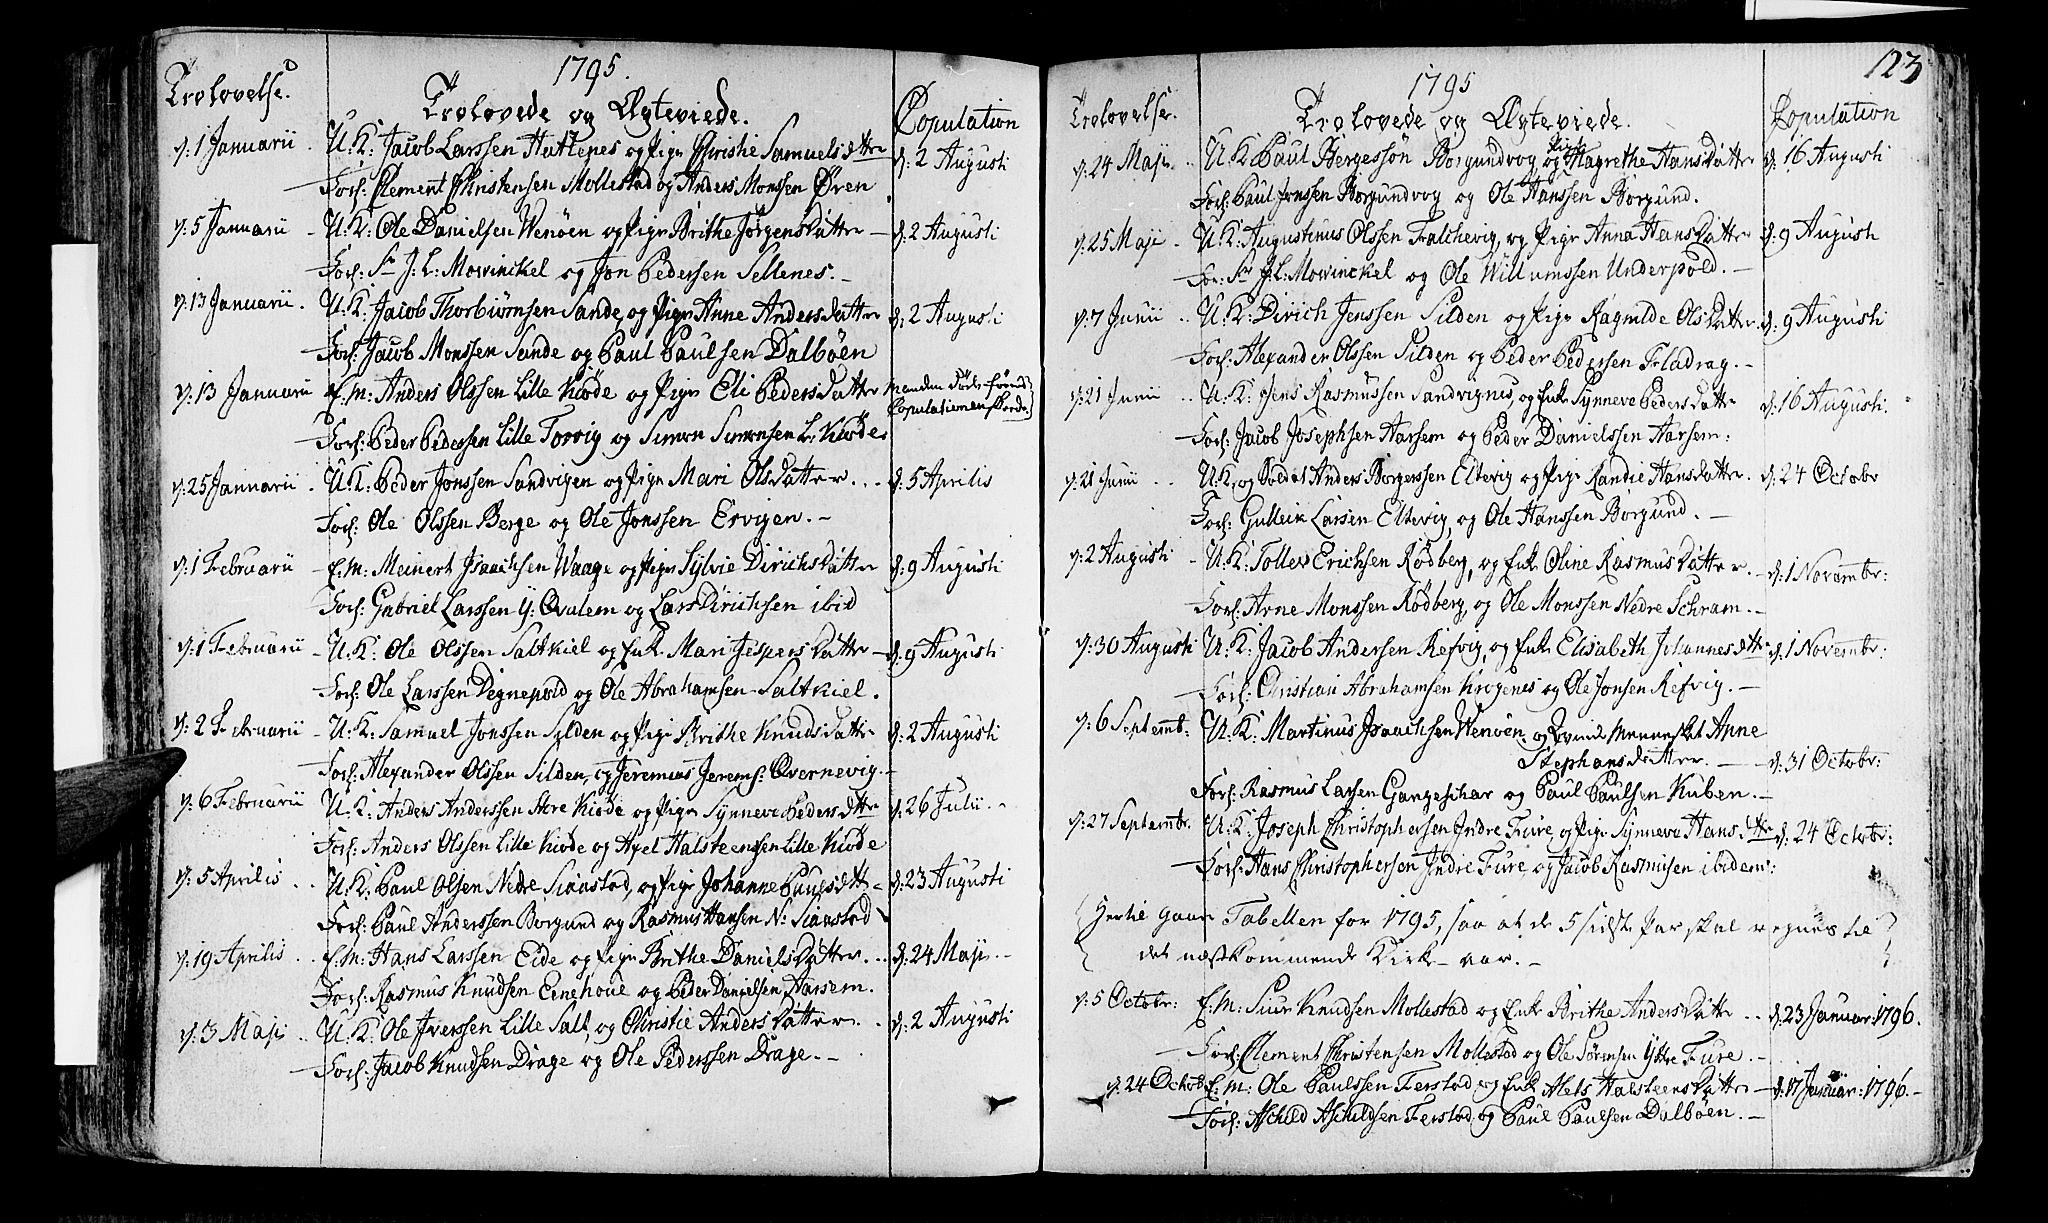 1795.
Trolovelse.
Trolovede og Ægteviede.
Copulation
d: 1 Januarii . U: K: Jacob Larssen Hattenes og Pige Christie Samuelsdttr d: 2 Augusti
Forl: Clement Christensen Mollestad og Anders Monssen Øren
d: 5 Januarii - U: K: Ole Danielsen Wenøen og Pige Brithe Jørgensdatter - d: 2 Augusti
Forl: Sr J: L: Mowinckel og Jon Pedersen Sellenes. -
d: 13 Januarii . U: K: Jacob Thorbiørnsen Sande og Pige Anne Andersdatter d: 2 Augusti
Forl: Jacob Monssen Sande og Paul Paulsen Dalbøen
d: 13 Januarii E: M: Anders Olssen Lille Kiøde og Pige Eli Pedersdatter Manden døde førend Copulationen skeede.
Forl: Peder Pederssen Lille Torvig og Simon Simonsen L: Kiøde
d: 25 Januarii . U: K: Peder Jonssen Sandvigen og Pige Mari Olsdatter ... d: 5 Aprilis
Forl: Ole Olssen Berge og Ole Jonssen Ervigen. -
d: 1 Februarii - E: M: Meinert Isaachsen Waage og Pige Sylvie Dirichsdatter d: 9 Augusti
Forl: Gabriel Larssen Y: Qvalem og Lars Dirichsen ibid
d: 1 Februarii - U: K: Ole Olssen Saltkiel og Enke Mari Jespersdatter - d: 9 Augusti
Forl: Ole Larssen Degnepold og Ole Abrahamsen Saltkiel.
d: 2 Februarii - U: K: Samuel Jonssen Silden og Pige Brithe Knudsdatter d: 2 Augusti
Forl: Alexander Olssen Silden, og Jeremias Jerems: Overnevig. -
d: 6 Februarii U: K: Anders Anderssen Store Kiøde og Pige Synneve Pedersdttr d: 26 Julii . -
Forl: Anders Olssen Lille Kiøde og Axel Halsteensen Lille Kiøde
d: 5 Aprilis .. U: K: Paul Olsen Nedre Siaastad, og Pige Johanne Paulsdttr - d: 23 Augusti
Forl: Paul Anderssen Borgund og Rasmus Hansen N: Siaastad
d: 19 Aprilis .. E: M: Hans Larssen Eide og Pige Brithe Danielsdatter ... d: 24 Maji . -
Forl: Rasmus Knudsen Enehoue og Peder Danielsen Aarsem.
d: 3 Maji .. U: K: Ole Iverssen Lille Salt, og Christie Andersdatter .. d: 2 Augusti
Forl: Jacob Knudsen Drage og Ole Pederssen Drage. -
123
1795
Trolovelse.
Trolovede og Ægteviede.
Copulation
d: 24 Maji .. U: K: Paul Børgessøn Borgundvog og Pige Magrethe Hansdatter d: 16 Augusti
Forl: Paul Jonssen Borgundvog og Ole Hanssen Borgund.
d: 25 Maji . U: K: Augustinus Olssen Falchevig, og Pige Anna Hansdatter d: 9 Augusti
For: Sr J: L: Mowinckel og Ole Willumssen Underpold. -
d: 7 Junii .. U: K: Dirich Jenssen Silden og Pige Ragnilde Olsdatter d: 9 Augusti
Forl: Alexander Olssen Silden og Peder Pedersen Fladrag. -
d: 21 Junii .. U: K: Jens Rasmussen Sandvignes, og Enke Synneve Pedersdatter d: 16 Augusti.
Forl: Jacob Josephsen Aarsem og Peder Danielssen Aarsem:
d: 21 Junii .. U: K: og Soldat Anders Borgerssen Eltevig og Pige Randie Hansdatter . d: 24 Octobr
Forl: Gulleik Larsen Eltevig, og Ole Hanssen Borgund. -
d: 2 Augusti - U: K: Tolles Erichsen Rødberg, og Enke Oline Rasmusdatter. - d: 1 Novembr:
Forl: Arne Monssen Rødberg, og Ole Monssen Nedre Schram. -
d: 30 Augusti U: K: Jacob Andersen Refvig, og Enke Elisabeth Johannesdttr d: 1 Novembr:
Forl: Christian Abrahamsen Krogenes og Ole Jonsen Refvig. -
d: 6 Septembr: U: K: Martinus Isaachsen Wenøen og Qvinde Mennesket Anne
Stephansdatter. - d: 31 Octobr:
Forl: Rasmus Larsen Gangesikar og Paul Paulsen Kuben. -
d: 27 Septembr. U: K: Joseph Christophersen Indre Fure og Pige Synneve Hansdttr d: 24 Octobr:
Forl: Hans Christophersen Indre Fure og Jacob Rasmusen ibidem:
Hertil gaaer Tabellen for 1795, saa at de 5 sidste Par skal regnes til
det næstkommende Kirke-aar. -
d: 5 Octobr: E: M: Siur Knudsen Mollestad og Enke Brithe Andersdatter .. d: 23 Januar: 1796.
Forl: Clement Christensen Mollestad og Ole Sørensen Yttre Fure. -
d: 24 Octob: E: M: Ole Paulssen Ferstad og Enke Alets Halsteensdatter - d: 17 Januar: 1796. -
Forl: Aschild Aschildsen Ferstad, og Paul Paulsen Dalbøen. -